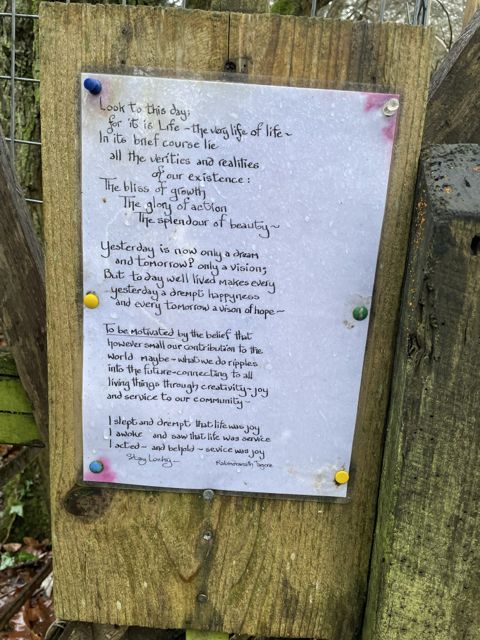 Look to this day;
for it is Life - the very life of life ~
In its brief course lie
all the verities and realities
of our existence:
The bliss of growth
The glory of action
The splendour of beauty ~
Yesterday is now only a dream
and tomorrow? only a vision;
But today well lived makes every
yesterday a drempt happyness
and every tomorrow a vison of hope ~
To be motivated by the belief that
however small our contribution to the
world maybe - what we do ripples
into the future - connecting to all
living things through creativity - joy
and service to our community ~
I slept and drempt that life was joy
I awoke and saw that life was service
I acted - and behold - sevice was joy
Stay Lucky ~